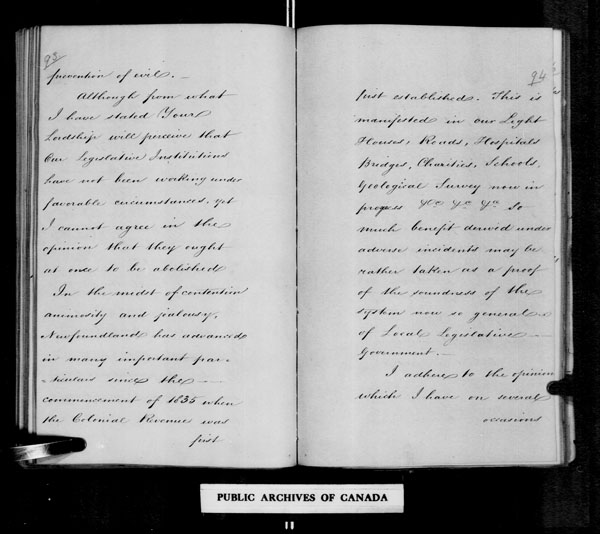 93
prevention of evil. –
Although from what
I have stated Your
Lordship will perceive that
Our Legislative Institutions
have not been working under
favorable circumstances, yet
I cannot agree in the
opinion that they ought
at once to be abolished
In the midst of contention
animosity and jealousy,
Newfoundland has advanced
in many important par-
-ticulars since the —
commencement of 1835 when
the Colonial Revenue was
first
94
first established. This is
manifested in our Light
Houses, Roads, Hospitals
Bridges, Charities, Schools,
Geological Survey now in
progress &ca &ca &ca So
much benefit derived under
adverse incidents may be
rather taken as a proof
of the soundness of the
system now so general
of Local Legislative —
Government. –
I adhere to the opinion
which I have on several
occasions
PUBLIC ARCHIVES OF CANADA